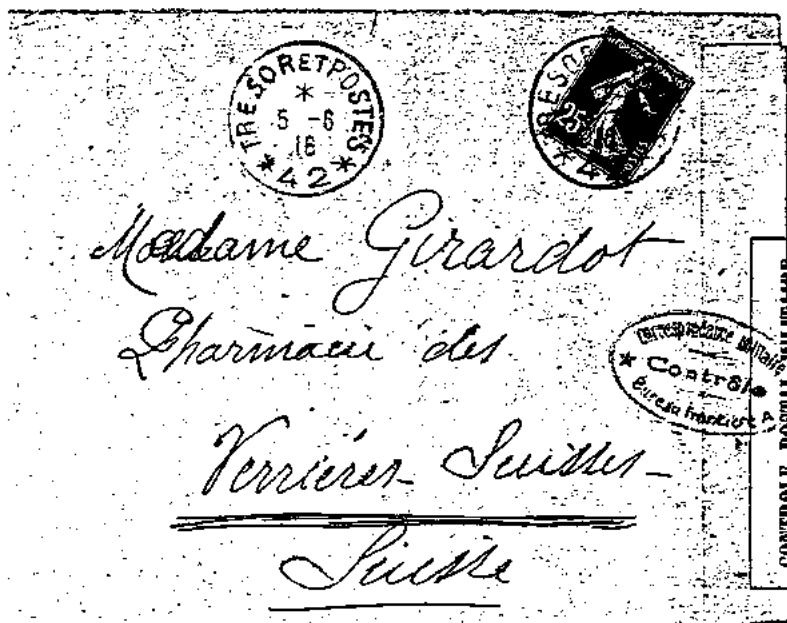 TRESOR ET POSTES
*
5 -6
16
* 42 *
RESO
25
* 4
Madame Girardot
Pharmacie des
Verrières Suisses
Suisse
Correspondance Militaire
* Contrôle
Bureau frontière A
CONTROLE POSTAL MILITAIRE